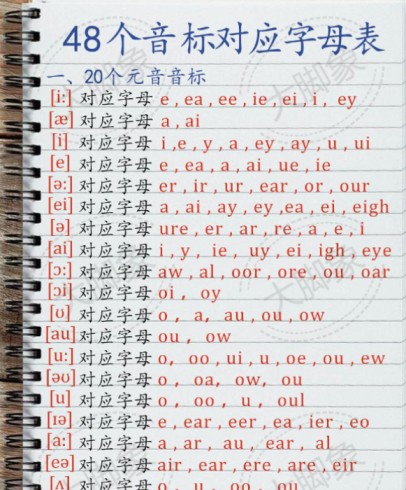 48个音标对应字母表
一、20个元音音标
[i:] 对应字母 e , ea , ee , ie , ei , i , ey
[æ] 对应字母 a , ai
[i] 对应字母 i , e , y , a , ey , ay , u , ui
[e] 对应字母 e , ea , a , ai , ue , ie
[ə:] 对应字母 er , ir , ur , ear , or , our
[ei] 对应字母 a , ai , ay , ey , ea , ei , eigh
[ə] 对应字母 ure , er , ar , re , a , e , i
[ai] 对应字母 i , y , ie , uy , ei , igh , eye
[ɔ:] 对应字母 aw , al , oor , ore , ou , oar
[ɔi] 对应字母 oi , oy
[ʊ] 对应字母 o , a, au , ou , ow
[au] 对应字母 ou , ow
[u:] 对应字母 o, oo , ui , u , oe , ou , ew
[əʊ] 对应字母 o , oa, ow, ou
[u] 对应字母 o , oo , u , oul
[ɪə] 对应字母 e , ear , eer , ea , ier , eo
[a:] 对应字母 a , ar , au , ear , al
[eə] 对应字母 air , ear , ere , are , eir
[ʌ] 对应字母 o , u , oo , ou
大脚象